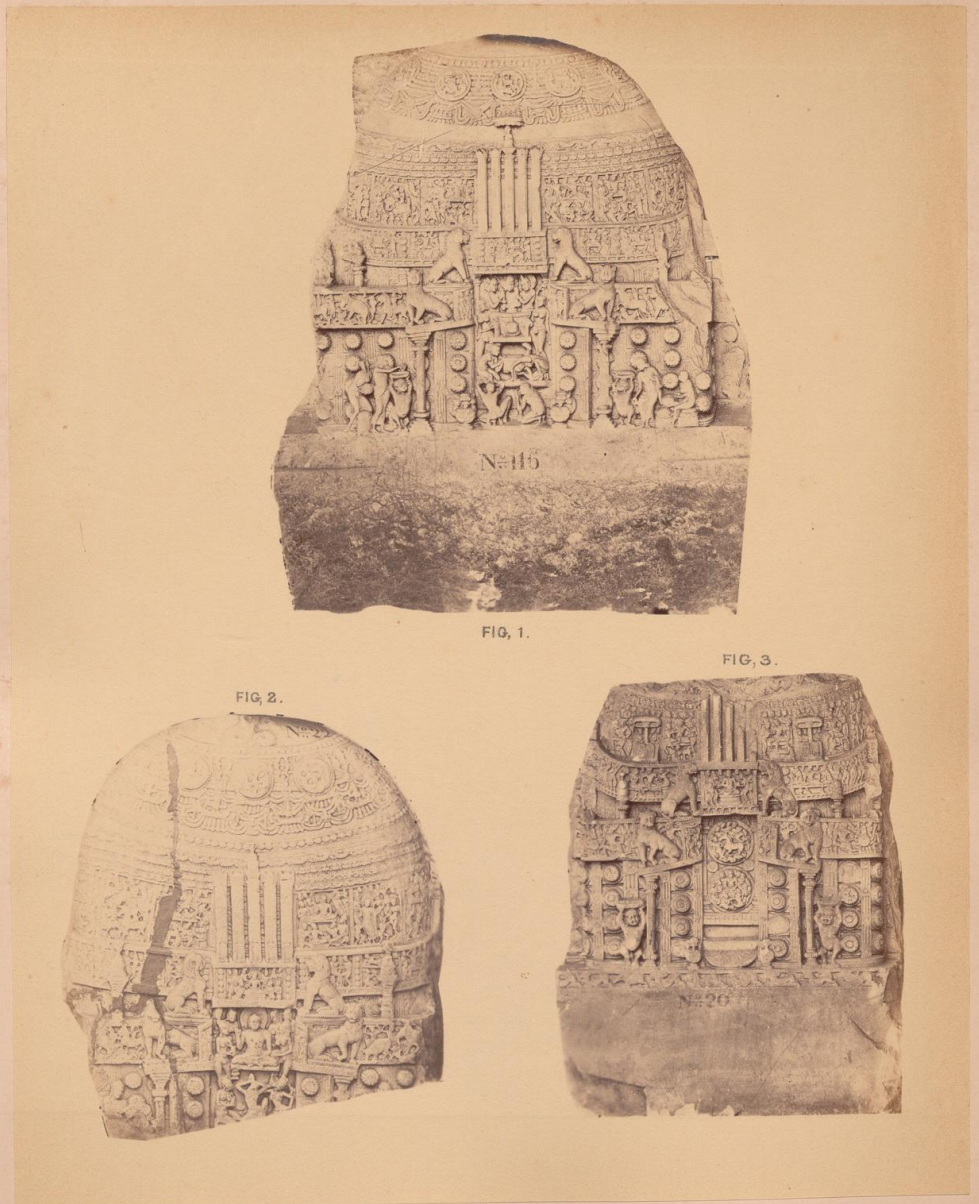 No. 115
FIG, 1.
FIG, 3.
FIG, 2.
No. 20